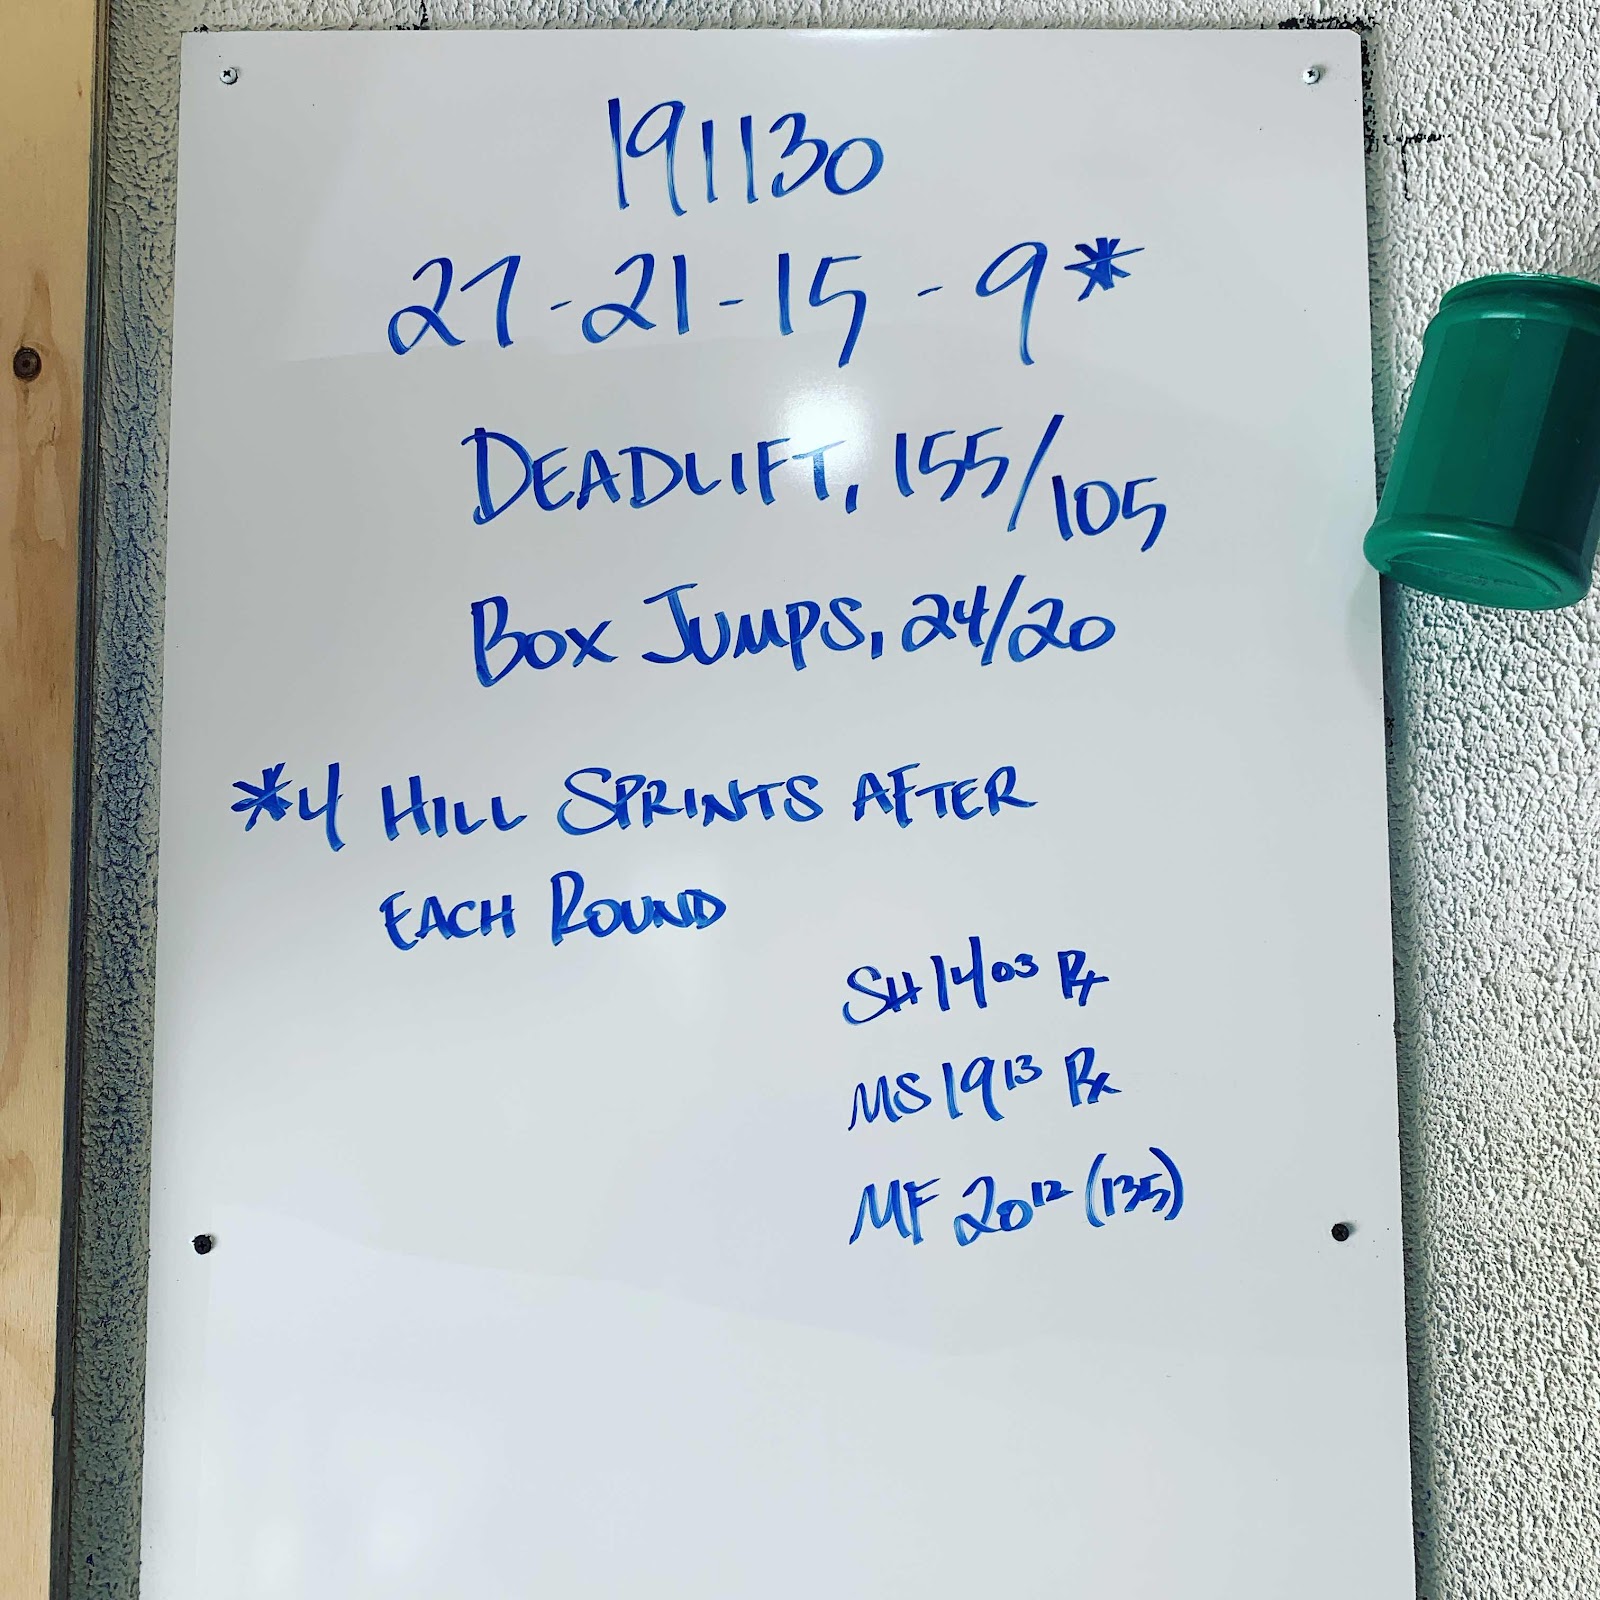 191130
27-21-15-9*
DEADLIFT, 155/105
BOX JUMPS, 24/20
*4 HILL SPRINTS AFTER
EACH ROUND
SH 14 03 Rx
MS 19 13 Rx
MF 20 12 (135)